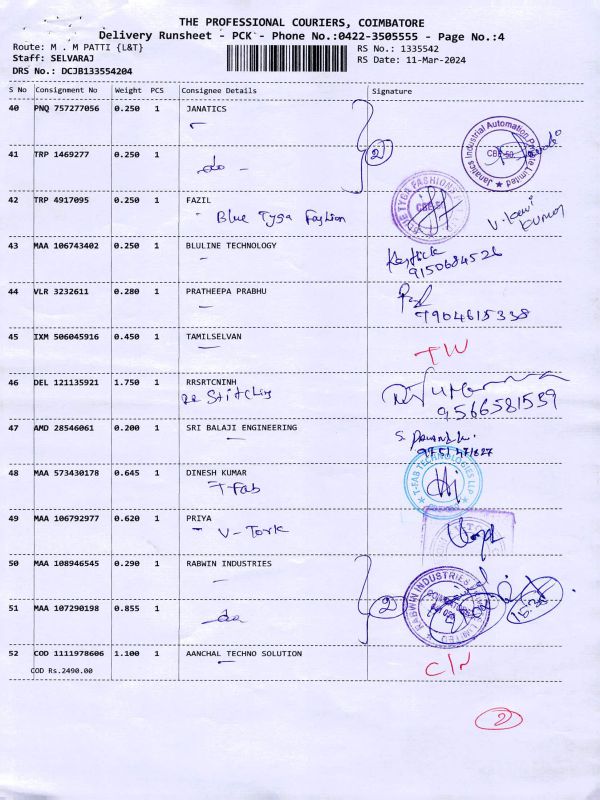 THE PROFESSIONAL COURIERS, COIMBATORE
Delivery Runsheet - PCK - Phone No.:0422-3505555 - Page No.:4
Route: M . M PATTI {L&T}
RS No.: 1335542
Staff: SELVARAJ
RS Date: 11-Mar-2024
DRS No.: DCJB133554204
S No Consignment No Weight PCS Consignee Details Signature
40 PNQ 757277056 0.250 1 JANATICS
2
Janatics Industrial Automation Private Limited
CBE-50.
41 TRP 1469277 0.250 1
do
42 TRP 4917095 0.250 1 FAZIL
Blue Tyga Fashion
V. Ravi
kumar
43 MAA 106743402 0.250 1 BLULINE TECHNOLOGY
Karthick
9150684526
44 VLR 3232611 0.280 1 PRATHEEPA PRABHU
7904615338
45 IXM 506045916 0.450 1 TAMILSELVAN
46 DEL 121135921 1.750 1 RRSRTCNINH
RR Stitching
9566581539
47 AMD 28546061 0.200 1 SRI BALAJI ENGINEERING
48 MAA 573430178 0.645 1 DINESH KUMAR
T-Fab
T-FAB TECHNOLOGIES LLP
49 MAA 106792977 0.620 1 PRIYA
V-Tork
50 MAA 108946545 0.290 1 RABWIN INDUSTRIES
2
RABWIN INDUSTRIES
LIMITED
15:30
51 MAA 107290198 0.855 1
do
52 COD 1111978606 1.100 1 AANCHAL TECHNO SOLUTION
COD Rs.2490.00
C/N
2